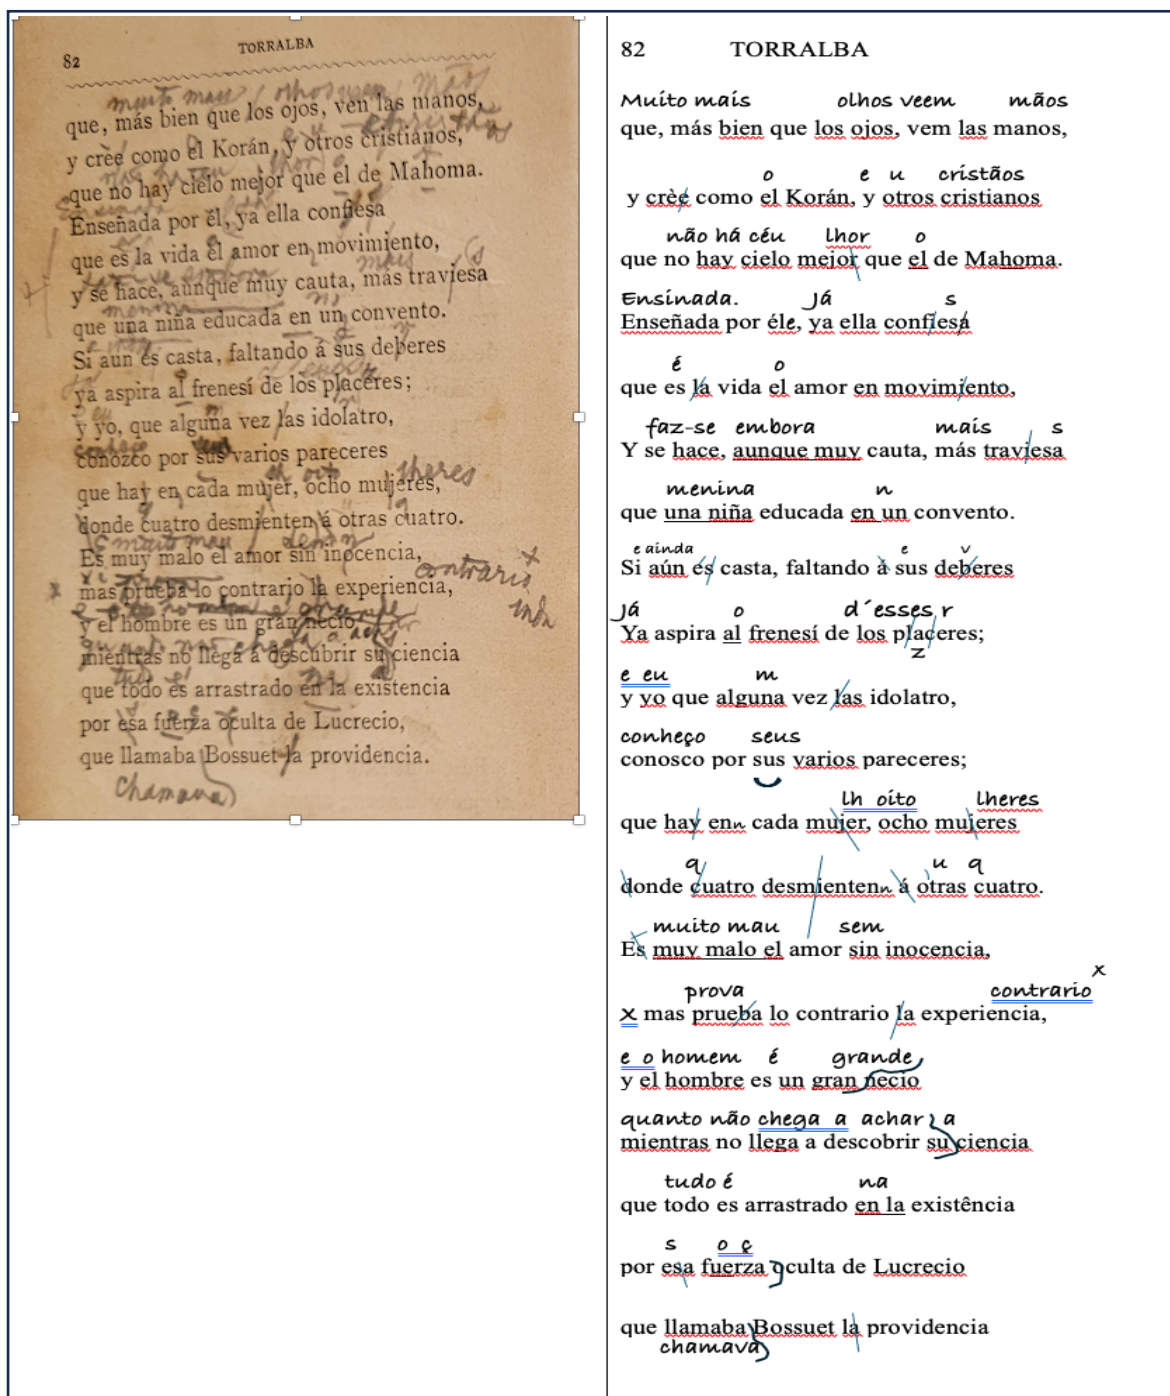 82 TORRALBA
que, más bien que los ojos, ven las manos,
y crèe como el Korán, y otros cristianos,
que no hay cielo mejor que el de Mahoma.
Enseñada por él, ya ella confiesa
que es la vida el amor en movimiento,
y se hace, aunque muy cauta, más traviesa
que una niña educada en un convento.
Si aun es casta, faltando á sus deberes
ya aspira al frenesí de los placeres;
y yo, que alguna vez las idolatro,
conozco por sus varios pareceres
que hay en cada mujer, ocho mujeres,
donde cuatro desmienten á otras cuatro.
Es muy malo el amor sin inocencia,
mas prueba lo contrario la experiencia,
y el hombre es un gran necio,
mientras no llega á descubrir su ciencia
que todo es arrastrado en la existencia
por esa fuerza oculta de Lucrecio,
que llamaba Bossuet la providencia.
Chamava
82 TORRALBA
Muito mais olhos veem mãos
que, más bien que los ojos, vem las manos,
o e u cristãos
y crèe como el Korán, y otros cristianos
não há céu lhor o
que no hay cielo mejor que el de Mahoma.
Ensinada. Já s
Enseñada por éle, ya ella confiesa
é o
que es la vida el amor en movimiento,
faz-se embora mais s
Y se hace, aunque muy cauta, más traviesa
menina n
que una niña educada en un convento.
e ainda e v
Si aún és casta, faltando à sus deberes
Já o d´esses r
Ya aspira al frenesí de los placeres;
z
e eu m
y yo que alguna vez las idolatro,
conheço seus
conosco por sus varios pareceres;
lh oito lheres
que hay enn cada mujer, ocho mujeres
q u q
donde cuatro desmientenn á otras cuatro.
muito mau sem
Es muy malo el amor sin inocencia,
prova contrario x
x mas prueba lo contrario la experiencia,
e o homem é grande
y el hombre es un gran necio
quanto não chega a achar a
mientras no llega a descobrir su ciencia
tudo é na
que todo es arrastrado en la existência
s o ç
por esa fuerza oculta de Lucrecio
que llamaba Bossuet la providencia
chamava